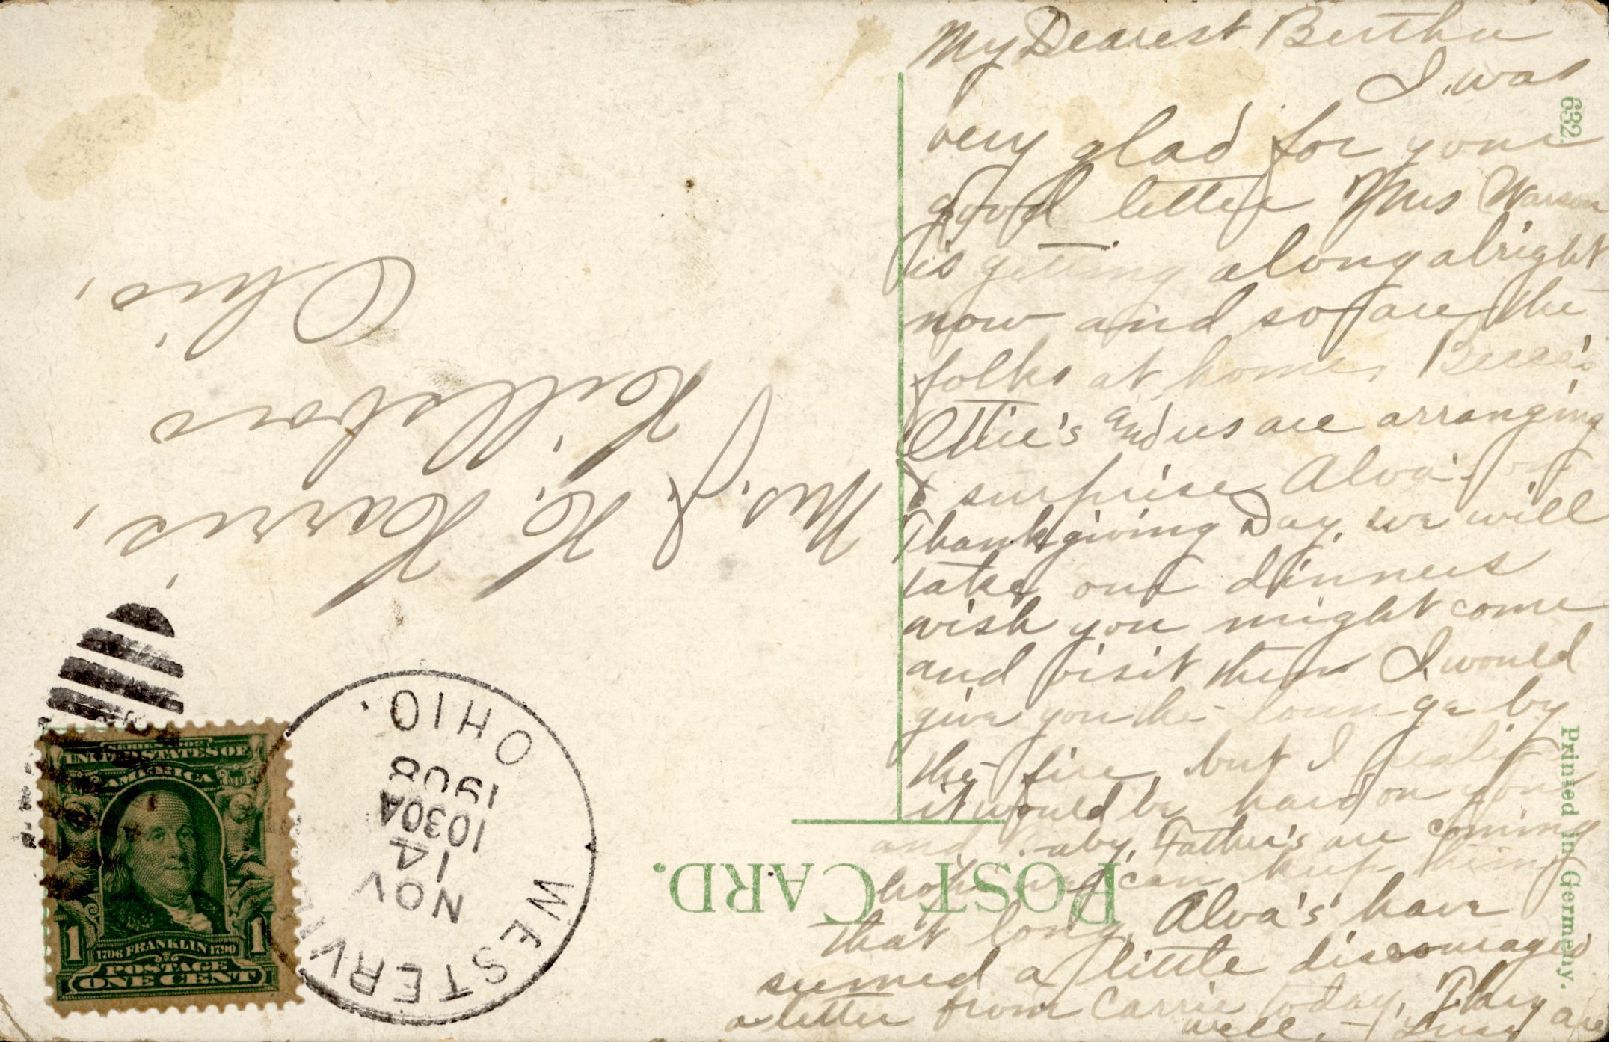 My Dearest Bertha
I was
very glad for your
good letter Mrs
is getting along alright
now and so are the
folks at home.
Ettie's and us are arranging
surprise Alva's
Thanksgiving Day, we will
take our dinners
wish you might come
and visit them I would
give you the lounge by
the fire, but I
it would be hard on your
and baby, Father's are coming
hope we can keep
that long. Alva's have
seemed a little discouraged
a letter from Carrie today, They are
well, —
632
Printed in Germany.
POST CARD.
Mrs. J. H. Harris,
Hillsboro
Ohio,
WESTERVI
OHIO.
NOV
14
1030A
1908
SERIES 1902
UNITED STATES OF
AMERICA
1706 FRANKLIN 1790
1 1
POSTAGE
ONE CENT